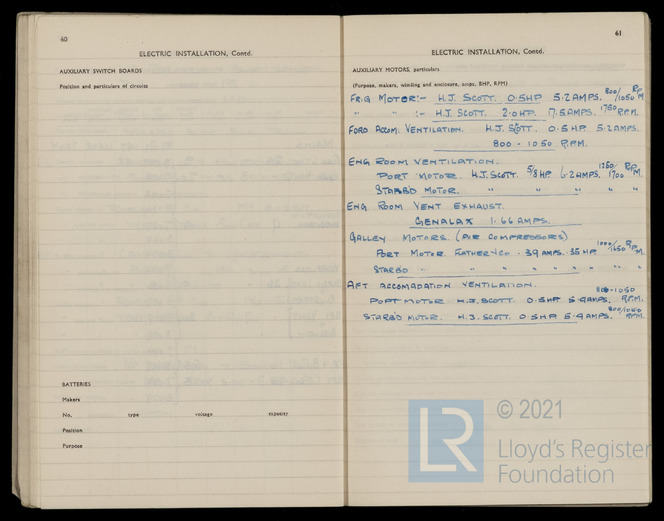 60
ELECTRIC INSTALLATION, Contd.
AUXILIARY SWITCH BOARDS
Position and particulars of circuits
BATTERIES
Makers
No. type voltage capacity
Position
Purpose
61
ELECTRIC INSTALLATION, Contd.
AUXILIARY MOTORS, particulars
(Purpose, makers, winding and enclosure, amps, BHP, RPM)
FRIG MOTOR:- H.J. SCOTT. 0.5HP 5.2 AMPS. 800/1050 RPM
" " :- H.J. SCOTT. 2.0HP. 7.5 AMPS. 1750 RPM.
FORD ACCOM. VENTILATION. H.J. SCOTT. 0.5HP 5.2 AMPS.
800 - 1050 RPM.
ENG ROOM VENTILATION.
PORT MOTOR. H.J. SCOTT. 5/8 HP 6.2 AMPS. 1250/1700 RPM.
STARBD MOTOR. " " " " "
ENG ROOM VENT EXHAUST.
GENALAX 1.66 AMPS.
GALLEY MOTORS. (AIR COMPRESSORS)
PORT MOTOR. 39 AMPS. 35 HP 1000/1650 RPM
STARBD " " " " " " "
AFT ACCOMADATION VENTILATION.
PORT MOTOR H.J. SCOTT. 0.5HP 5.4 AMPS. 800-1050 RPM.
STARB'D MOTOR. H.J. SCOTT. 0.5HP 5.4 AMPS. 800/1050 RPM.
LR © 2021
Lloyd's Register
Foundation